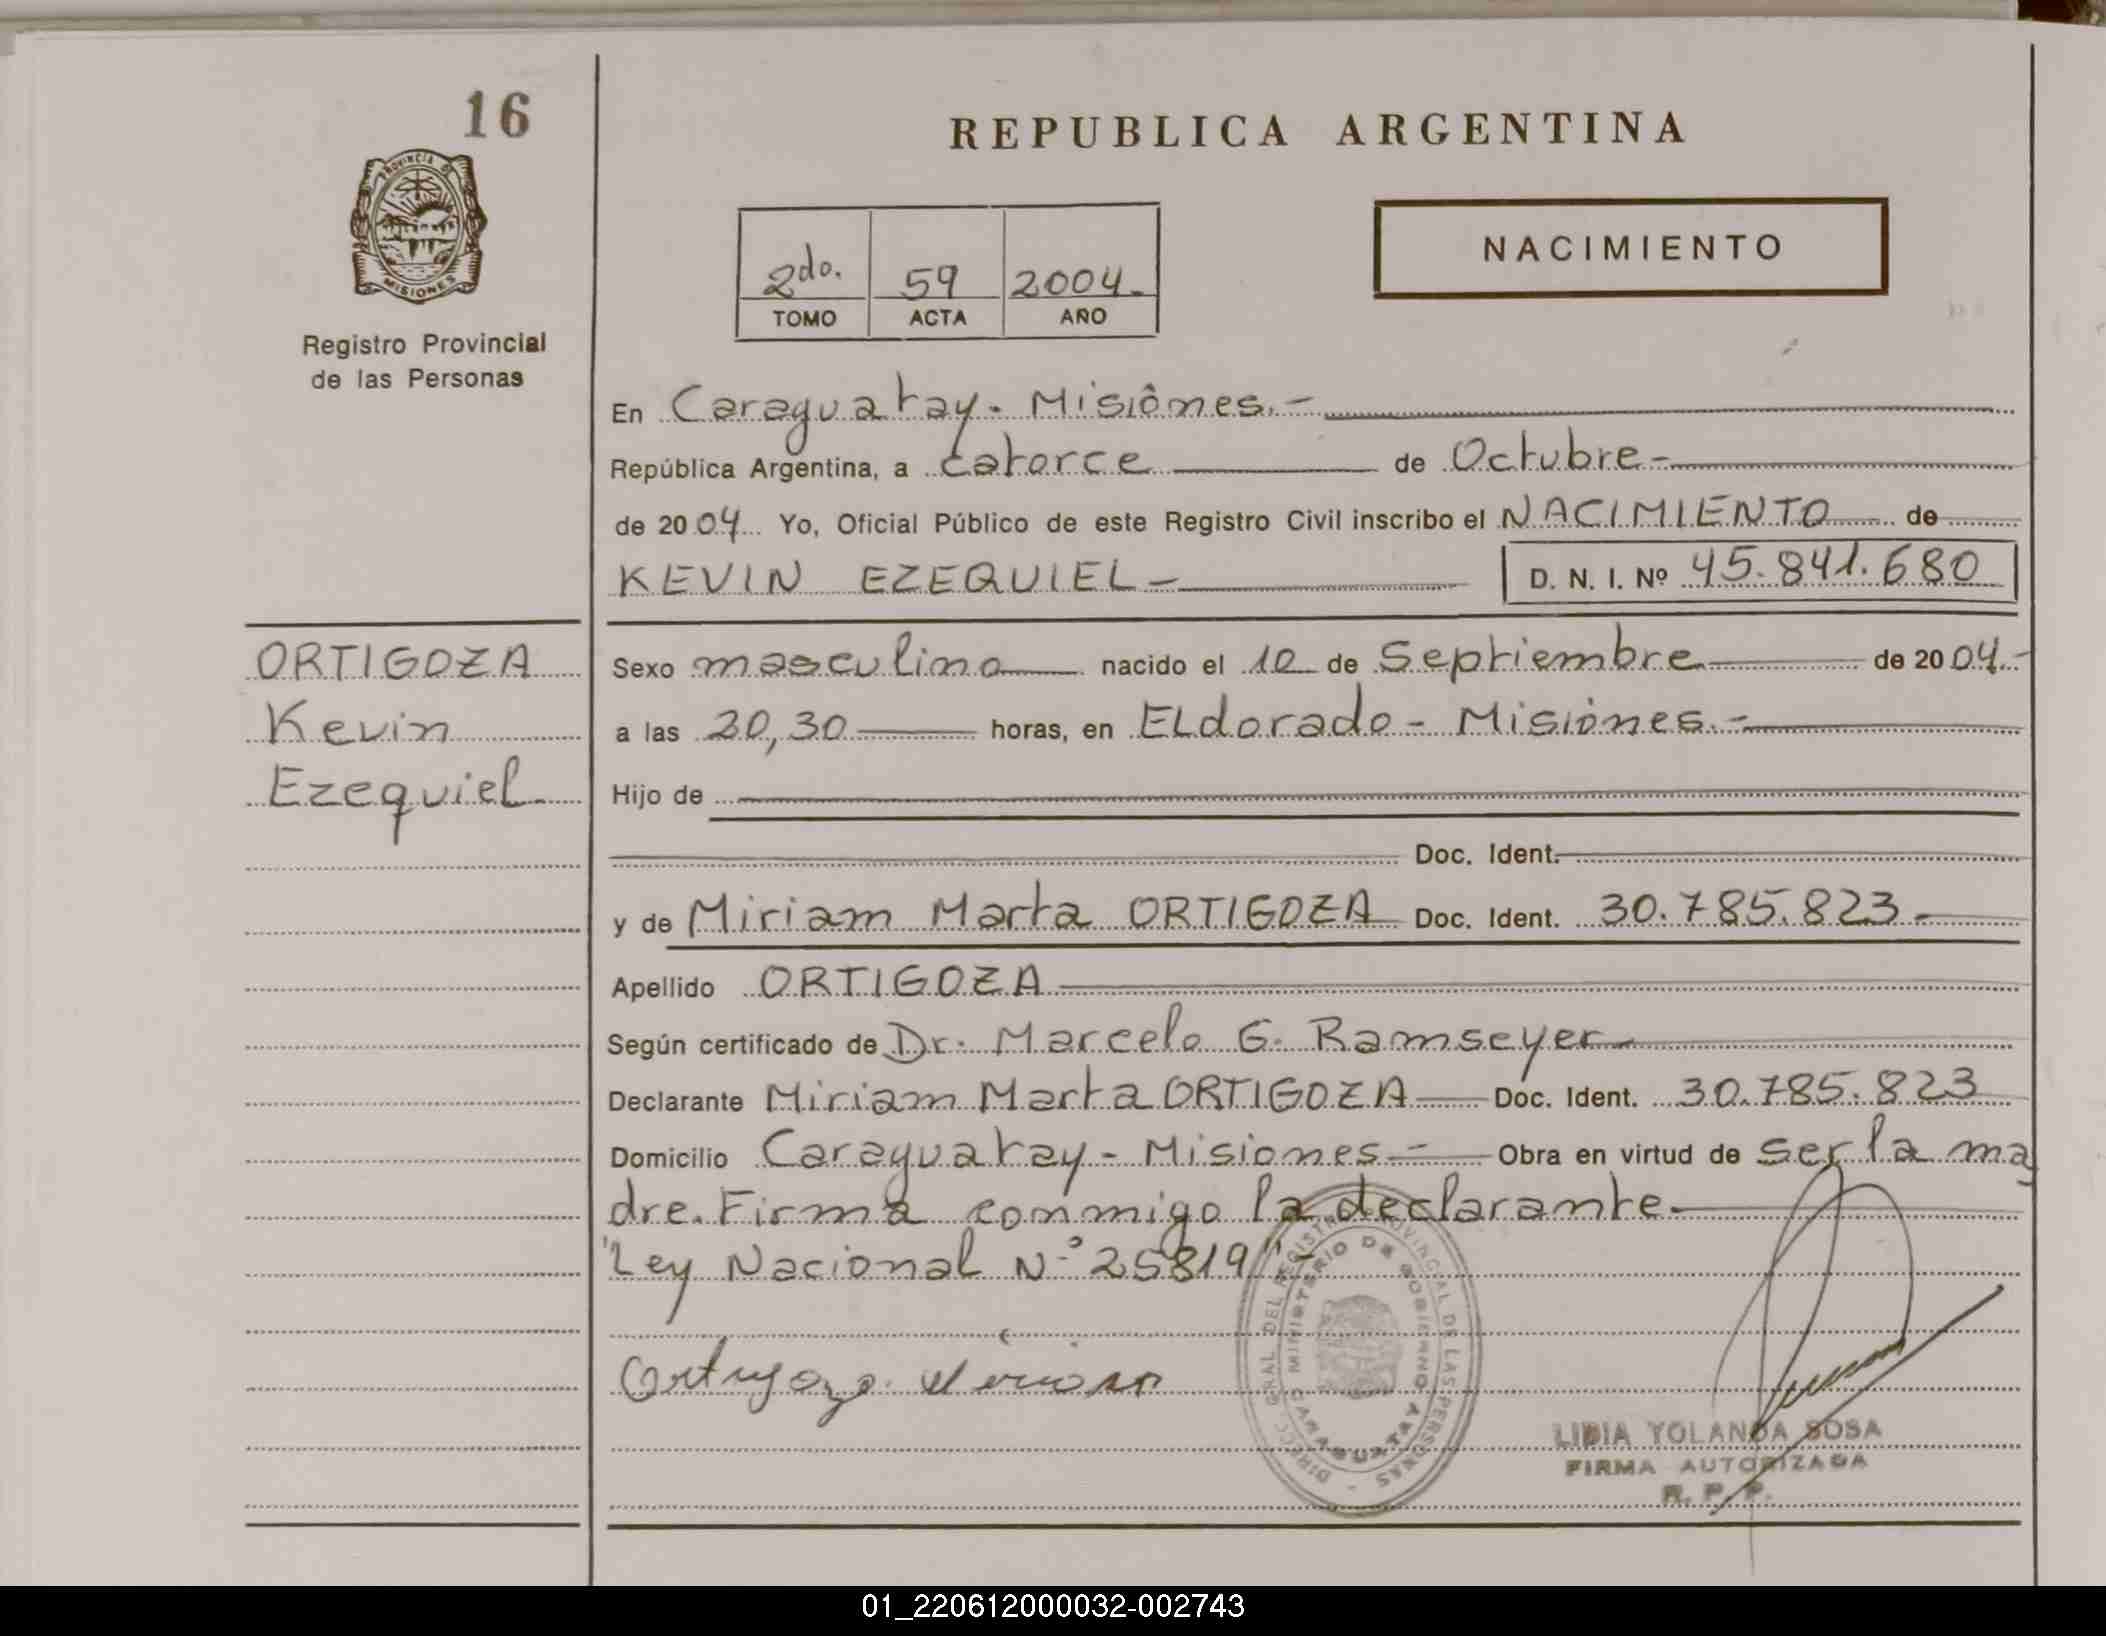 16
PROVINCIA DE
MISIONES
Registro Provincial
de las Personas
REPUBLICA ARGENTINA
2do. 59 2004.
TOMO ACTA AÑO
NACIMIENTO
En Caraguatay. Misiones.-
República Argentina, a catorce de Octubre-
de 2004 Yo, Oficial Público de este Registro Civil inscribo el NACIMIENTO de
KEVIN EZEQUIEL- D. N. I. Nº 45.841.680
ORTIGOZA
Kevin
Ezequiel
Sexo masculino nacido el 10 de Septiembre de 2004.-
a las 20,30 horas, en ELdorado - Misiones.-
Hijo de
Doc. Ident.
y de Miriam Marta ORTIGOZA Doc. Ident. 30.785.823.-
Apellido ORTIGOZA
Según certificado de Dr. Marcelo G. Ramseyer
Declarante Miriam Marta ORTIGOZA Doc. Ident. 30.785.823
Domicilio Caraguatay - Misiones.- Obra en virtud de ser la ma
dre. Firma conmigo la declarante.
"Ley Nacional N° 25819".-
Ortigoza Miriam
DIRECC. GRAL. DEL REGISTRO PROVINCIAL DE LAS PERSONAS
MINISTERIO DE GOBIERNO
CARAGUATAY
LIDIA YOLANDA SOSA
FIRMA AUTORIZADA
R. P. P.
01_220612000032-002743